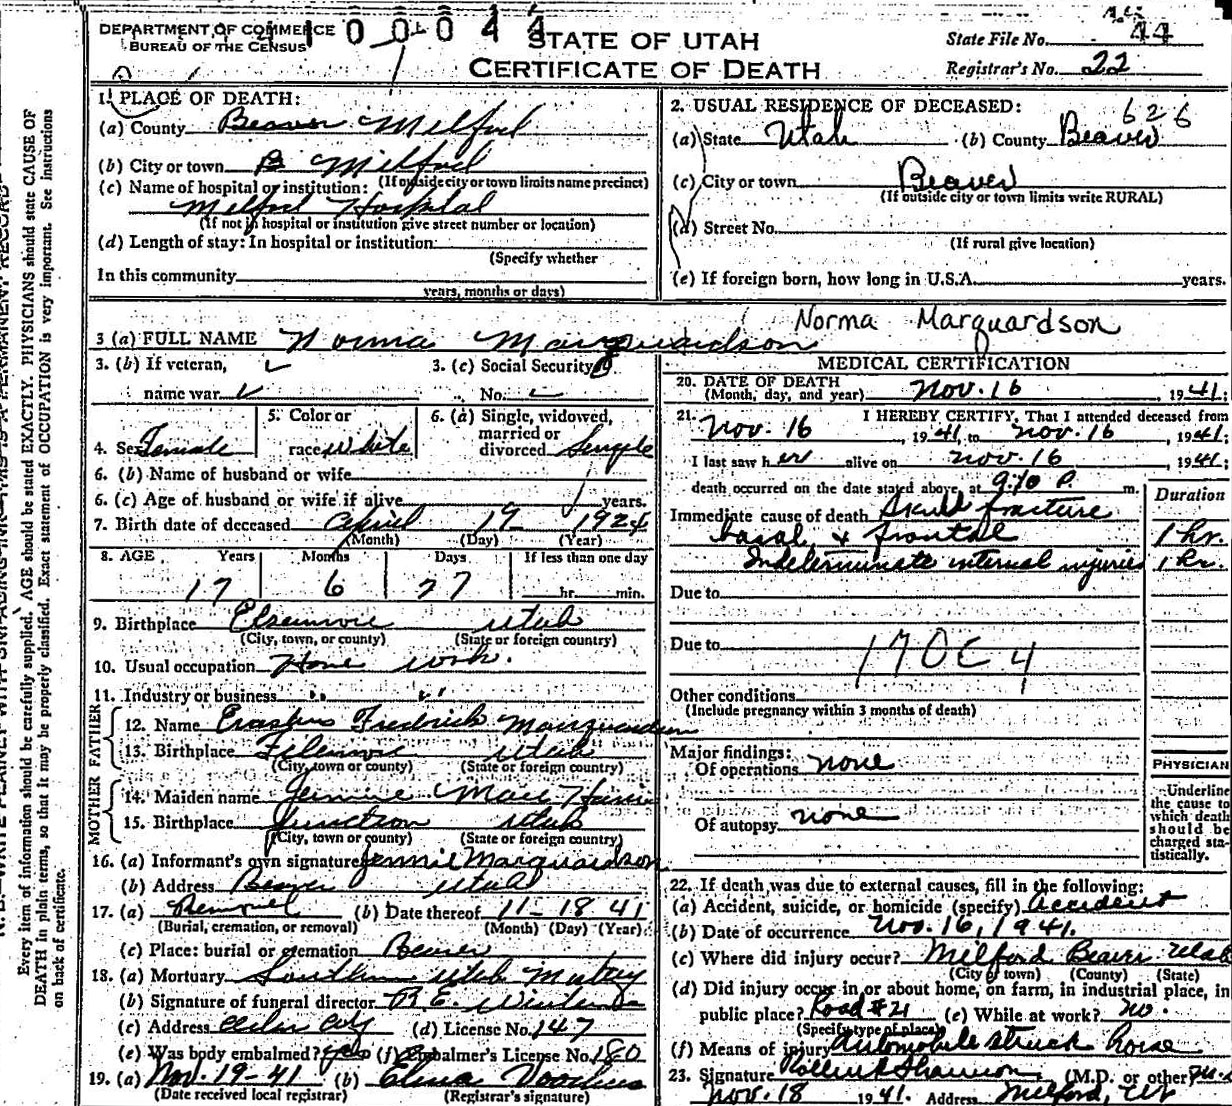 DEPARTMENT OF COMMERCE
BUREAU OF THE CENSUS
4 1 0 0 0 4 4
STATE OF UTAH
CERTIFICATE OF DEATH
State File No. 44
Registrar's No. 22
Every item of information should be carefully supplied. AGE should be stated EXACTLY. PHYSICIANS should state CAUSE OF
DEATH in plain terms, so that it may be properly classified. Exact statement of OCCUPATION is very important. See Instructions
on back of certificate.
1. PLACE OF DEATH:
(a) County Beaver Milford
(b) City or town B Milford
(If outside city or town limits name precinct)
(c) Name of hospital or institution:
Milford Hospital
(If not in hospital or institution give street number or location)
(d) Length of stay: In hospital or institution
(Specify whether
In this community
years, months or days)
2. USUAL RESIDENCE OF DECEASED:
626
(a) State Utah (b) County Beaver
(c) City or town Beaver
(If outside city or town limits write RURAL)
(d) Street No.
(If rural give location)
(e) If foreign born, how long in U.S.A. years.
Norma Marquardson
3 (a) FULL NAME Norma Marquardson
3. (b) If veteran,
name war
3. (c) Social Security
No.
4. Sex Female
5. Color or
race white
6. (a) Single, widowed,
married or
divorced Single
6. (b) Name of husband or wife
6. (c) Age of husband or wife if alive years.
7. Birth date of deceased April 19 1924
(Month) (Day) (Year)
8. AGE Years Months Days If less than one day
17 6 27 hr. min.
9. Birthplace Elsinore Utah
(City, town, or county) (State or foreign country)
10. Usual occupation Home work.
11. Industry or business " "
FATHER
12. Name Erastus Fredrick Marquardson
13. Birthplace Utah
(City, town or county) (State or foreign country)
MOTHER
14. Maiden name Jennie Mae
15. Birthplace Junction Utah
(City, town or county) (State or foreign country)
16. (a) Informant's own signature Jennie Marquardson
(b) Address Beaver Utah
17. (a) Removal (b) Date thereof 11-18 41
(Burial, cremation, or removal) (Month) (Day) (Year)
(c) Place: burial or cremation Beaver
18. (a) Mortuary Southern Utah
(b) Signature of funeral director R.E.
(c) Address Cedar City (d) License No. 147
(e) Was body embalmed? yes (f) Embalmer's License No. 180
19. (a) Nov. 19-41 (b) Elma
(Date received local registrar) (Registrar's signature)
MEDICAL CERTIFICATION
20. DATE OF DEATH
(Month, day, and year) Nov. 16, 1941.
21. I HEREBY CERTIFY, That I attended deceased from
Nov. 16, 1941, to Nov. 16, 1941.
I last saw her alive on Nov. 16, 1941;
death occurred on the date stated above, at 9:10 P. m.
Duration
Immediate cause of death Skull fracture
basal & frontal 1 hr.
Indeterminate internal injuries 1 hr.
Due to
Due to
170C 4
Other conditions
(Include pregnancy within 3 months of death)
Major findings:
Of operations none
Of autopsy none
PHYSICIAN
Underline
the cause to
which death
should be
charged sta-
tistically.
22. If death was due to external causes, fill in the following:
(a) Accident, suicide, or homicide (specify) Accident
(b) Date of occurrence Nov. 16, 1941.
(c) Where did injury occur? Milford Beaver Utah
(City or town) (County) (State)
(d) Did injury occur in or about home, on farm, in industrial place, in
public place? Road #21 (e) While at work? no.
(Specify type of place)
(f) Means of injury Automobile struck horse
23. Signature (M.D. or other) M.D.
Nov. 18 1941. Address Milford, Ut